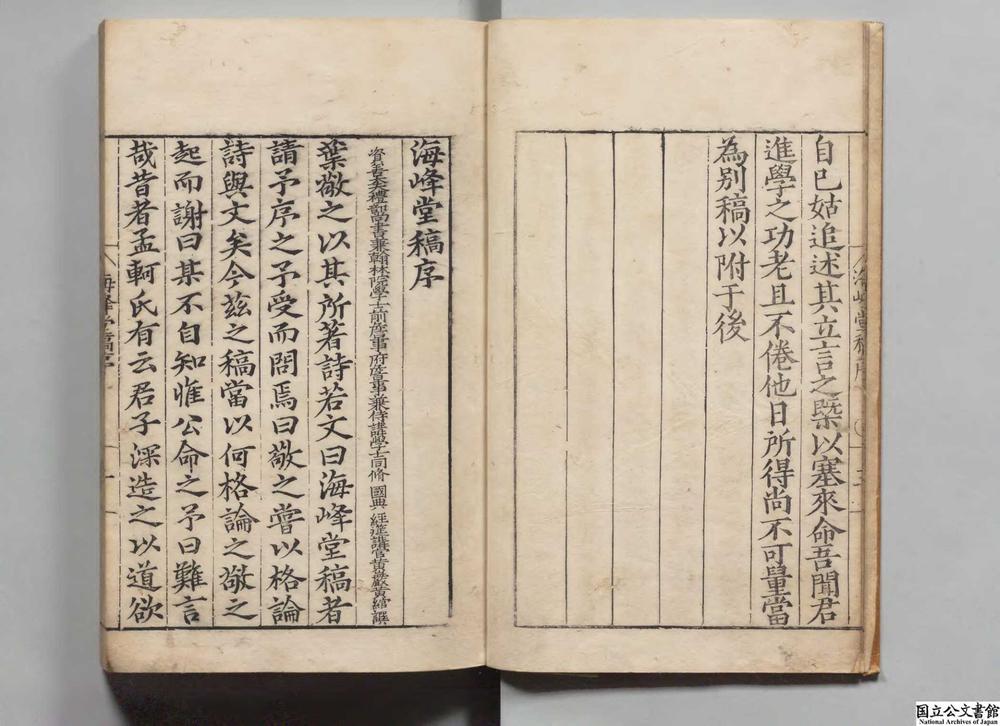 自已姑追述其立言之槩以塞來命吾聞君
進學之功老且不倦他日所得尚不可量當
為别稿以附于後
海峰堂稿序
資善大夫禮部尚書兼翰林院學士前詹事府詹事兼侍講學士同脩 國典 經筵講官黄巖黄綰譔
葉敬之以其所著詩若文曰海峰堂稿者
請予序之予受而問焉曰敬之嘗以格論
詩與文矣今兹之稿當以何格論之敬之
起而謝曰某不自知惟公命之予曰難言
哉昔者孟軻氏有云君子深造之以道欲
海峰堂稿序
国立公文書館
National Archives of Japan